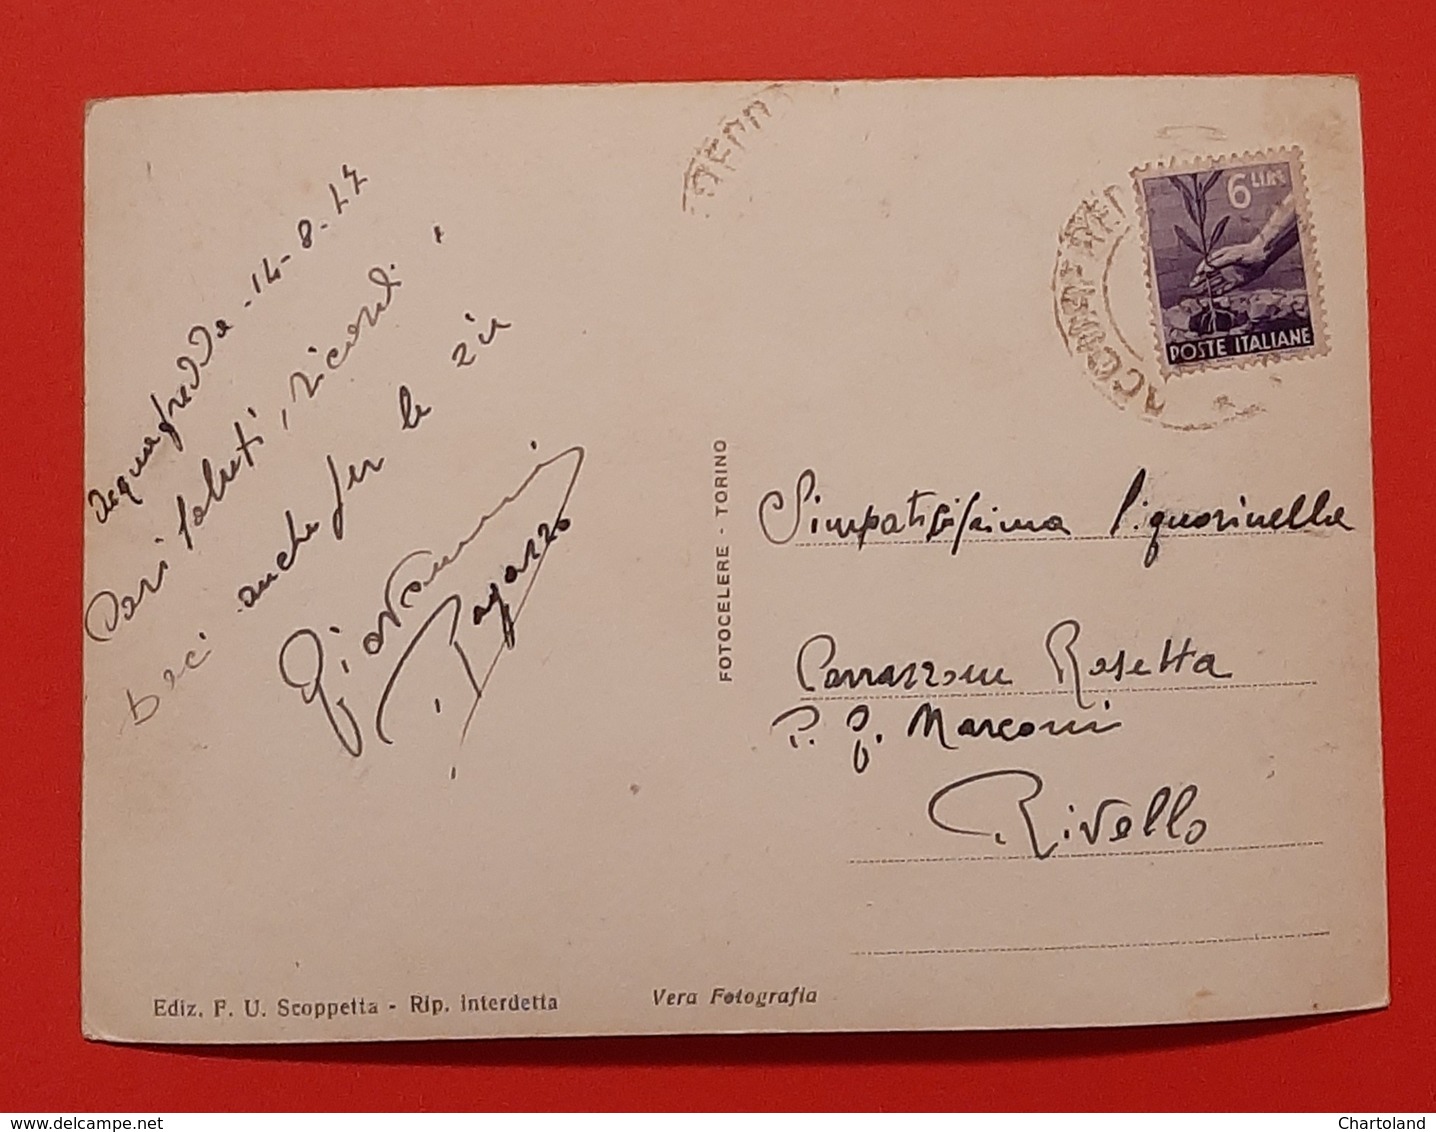 Acquafredda - 14-8-47
Cari saluti, ricordi,
baci anche per la zia
Giovanni
Ragazzo
6 LIRE
POSTE ITALIANE
FOTOCELERE - TORINO
Simpatisissima Signorinella
Carrazzone Rosetta
P. G. Marconi
Rivello
Ediz. F. U. Scoppetta - Rip. interdetta
Vera Fotografia
www.delcampe.net
Chartoland